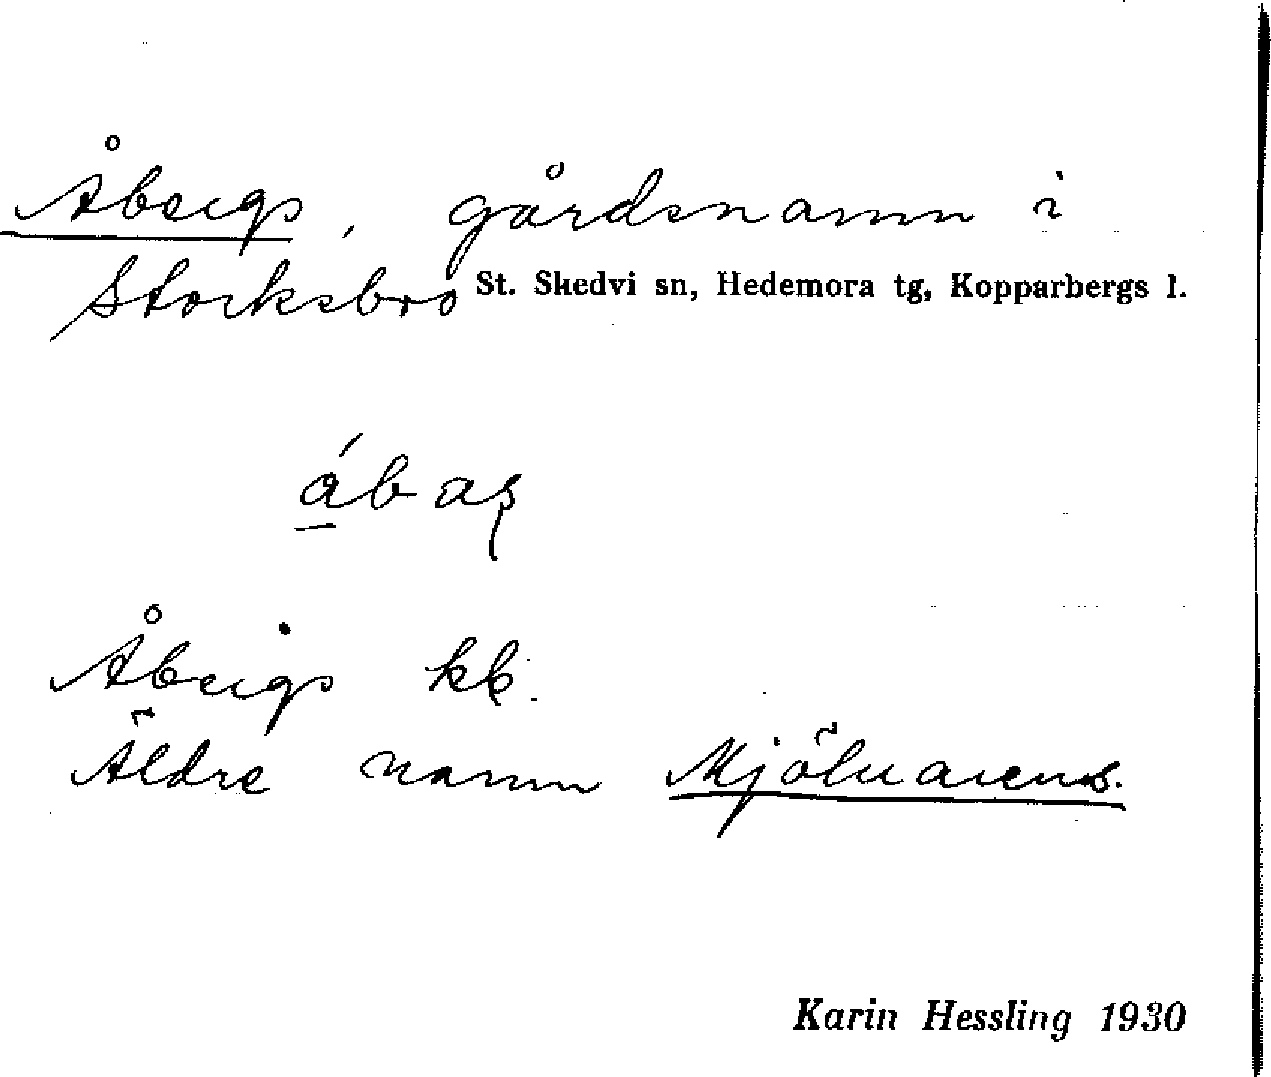 Åbergs, gårdsnamn i
Storksbro St. Skedvi sn, Hedemora tg, Kopparbergs l.
Åbergs kk.
Äldre namn Mjölnarens.
Karin Hessling 1930